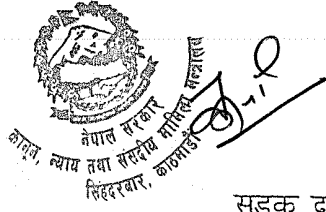 नेपाल सरकार
कानून, न्याय तथा संसदीय मामिला मन्त्रालय
सिंहदरबार, काठमाडौं
सडक